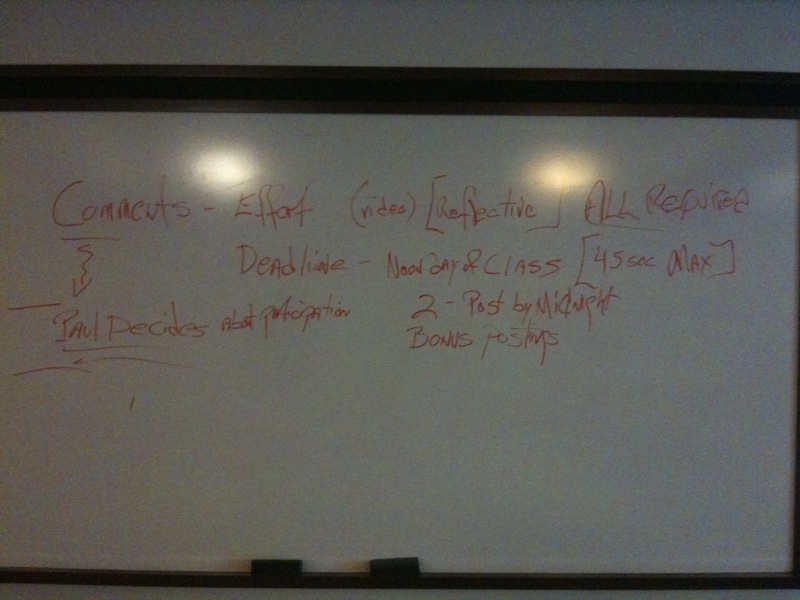 Comments - Effort (video) [Reflective] ALL Required
Deadline - Noon day of CLASS [45 sec MAX]
Paul Decides about participation 2 - Post by Midnight
Bonus postings